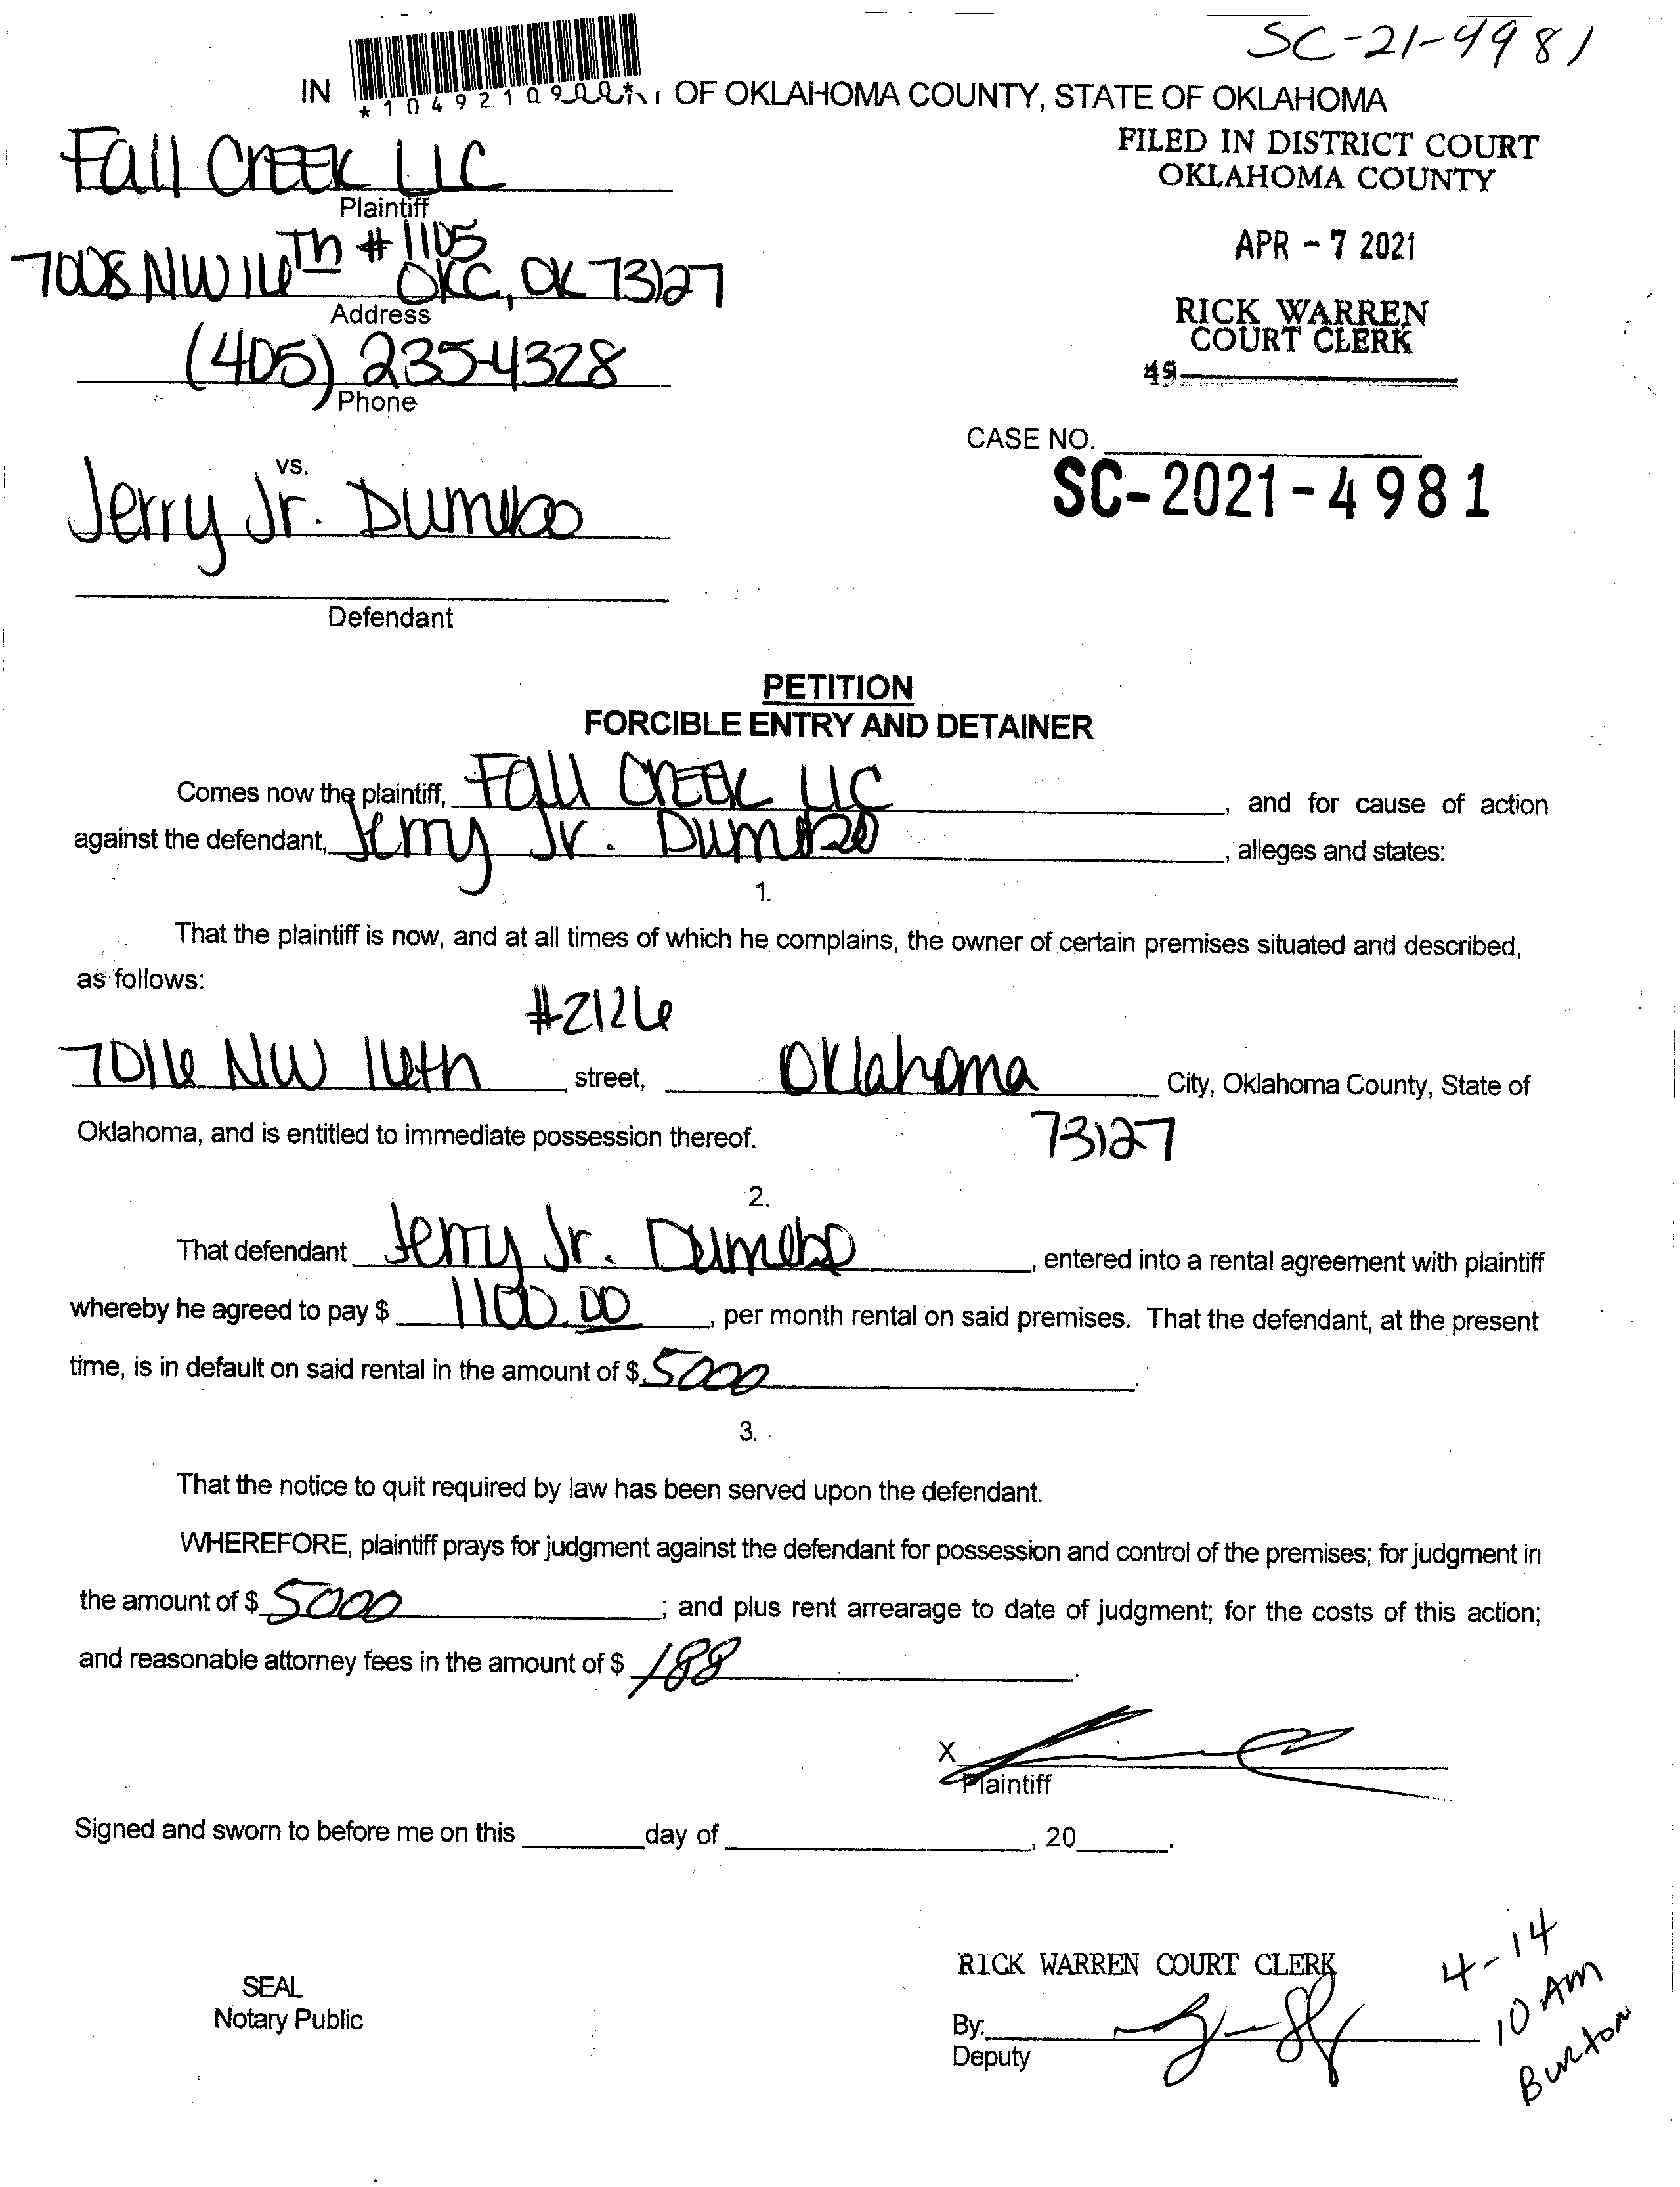 SC-21-4981
IN OF OKLAHOMA COUNTY, STATE OF OKLAHOMA
FILED IN DISTRICT COURT
OKLAHOMA COUNTY
Fall Creek LLC
Plaintiff
7008 NW 16th #1105
OKC, OK 73127
Address
APR - 7 2021
RICK WARREN
COURT CLERK
45
(405) 235-4328
Phone
CASE NO.
SC-2021-4981
vs.
Jerry Jr.
Defendant
PETITION
FORCIBLE ENTRY AND DETAINER
Comes now the plaintiff, Fall Creek LLC, and for cause of action
against the defendant, Jerry Jr., alleges and states:
1.
That the plaintiff is now, and at all times of which he complains, the owner of certain premises situated and described,
as follows:
#2126
7016 NW 16th street, Oklahoma City, Oklahoma County, State of
Oklahoma, and is entitled to immediate possession thereof. 73127
2.
That defendant Jerry Jr., entered into a rental agreement with plaintiff
whereby he agreed to pay $ 1100.00, per month rental on said premises. That the defendant, at the present
time, is in default on said rental in the amount of $ 5000.
3.
That the notice to quit required by law has been served upon the defendant.
WHEREFORE, plaintiff prays for judgment against the defendant for possession and control of the premises; for judgment in
the amount of $ 5000; and plus rent arrearage to date of judgment; for the costs of this action;
and reasonable attorney fees in the amount of $ 188.
X
Plaintiff
Signed and sworn to before me on this day of , 20 .
SEAL
Notary Public
RICK WARREN COURT CLERK
By:
Deputy
4-14
10 AM
Burton